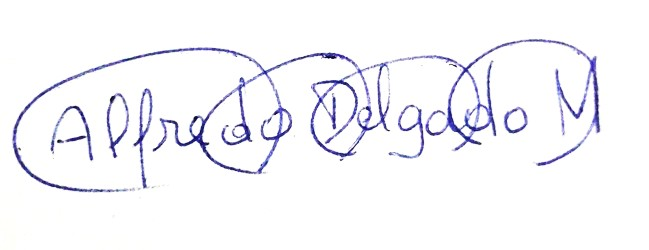 Alfredo Delgado M